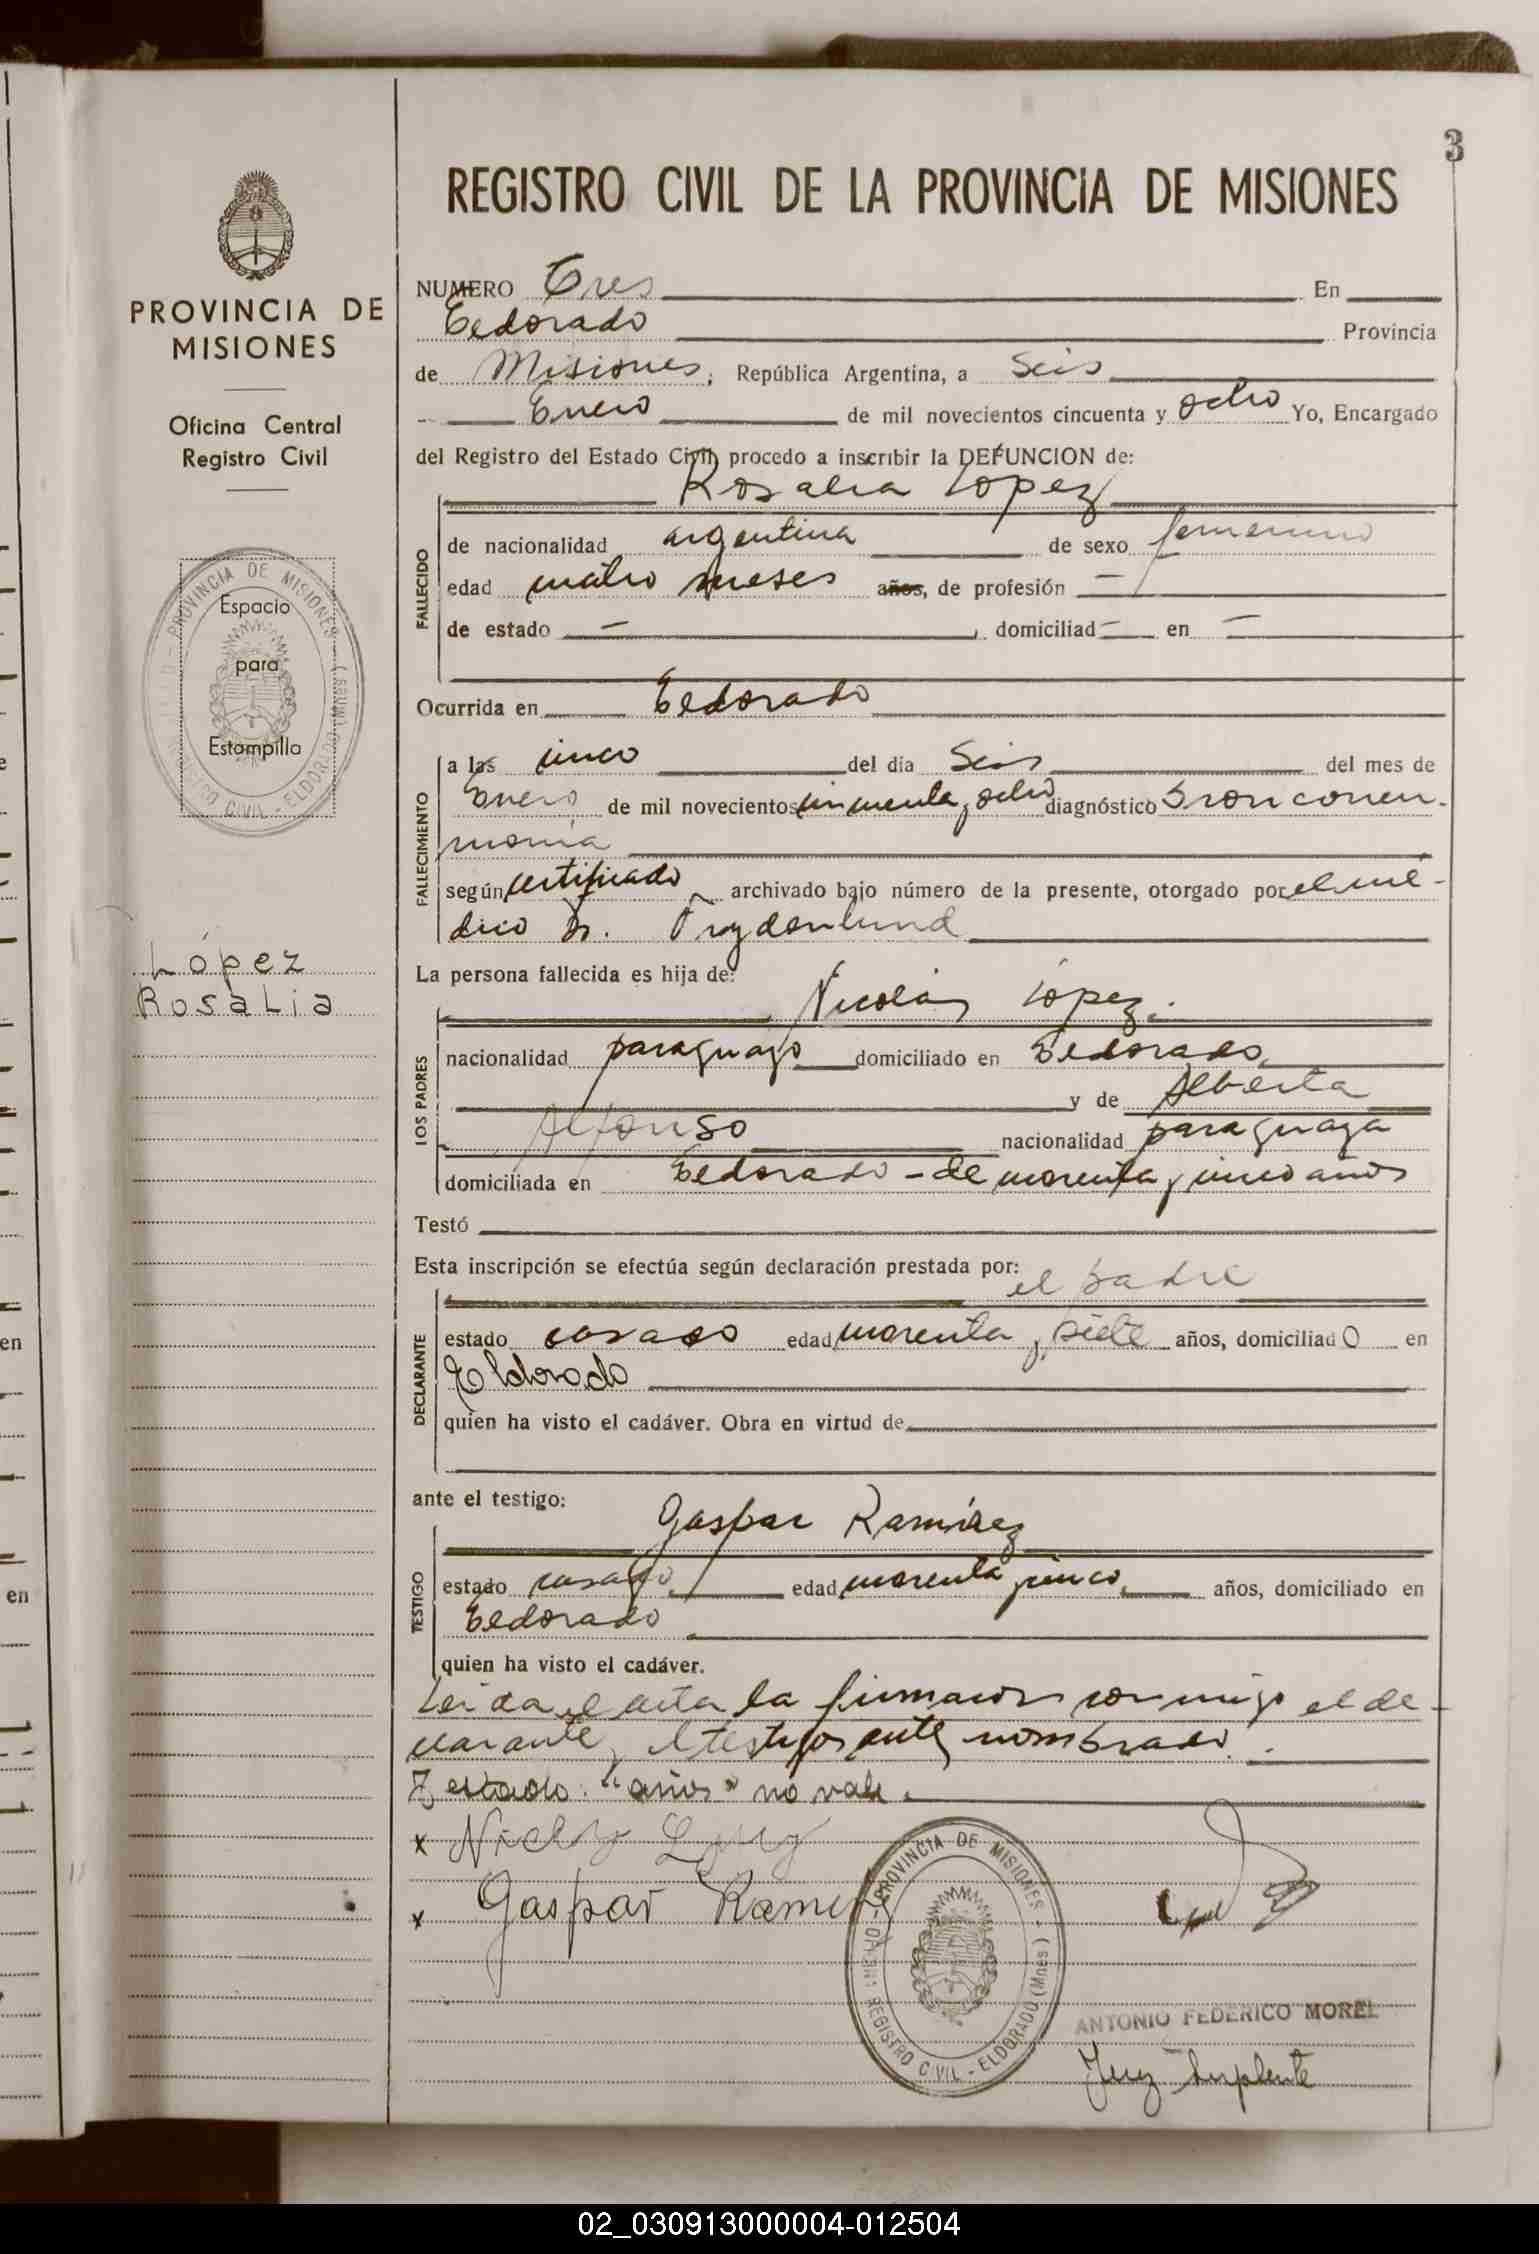 3
REGISTRO CIVIL DE LA PROVINCIA DE MISIONES
PROVINCIA DE
MISIONES
Oficina Central
Registro Civil
Espacio
para
Estampilla
López
Rosalia
NUMERO Tres En
Eldorado Provincia
de Misiones; República Argentina, a Seis
Enero de mil novecientos cincuenta y ocho Yo, Encargado
del Registro del Estado Civil, procedo a inscribir la DEFUNCION de:
Rosalia López
FALLECIDO
de nacionalidad argentina de sexo femenino
edad cuatro meses años, de profesión —
de estado — , domiciliad — en —
Ocurrida en Eldorado
FALLECIMIENTO
a las cinco del día Seis del mes de
Enero de mil novecientos cincuenta y ocho diagnóstico Bronconeu-
monia
según certificado archivado bajo número de la presente, otorgado por el mé-
dico Dr.
La persona fallecida es hija de:
Nicolás López.
LOS PADRES
nacionalidad paraguayo domiciliado en Eldorado
y de Alberta
Alfonso nacionalidad paraguaya
domiciliada en Eldorado - de cuarenta y cinco años
Testó
Esta inscripción se efectúa según declaración prestada por:
el padre
DECLARANTE
estado casado edad cuarenta y siete años, domiciliado en
Eldorado
quien ha visto el cadáver. Obra en virtud de
ante el testigo:
Gaspar Ramírez
TESTIGO
estado casado edad cuarenta y cinco años, domiciliado en
Eldorado
quien ha visto el cadáver.
Leida el acta la firmaron conmigo el de-
clarante y el testigo ante nombrado.
Testado: "años" no vale.
x
x Gaspar Ramirez
PROVINCIA DE MISIONES
REGISTRO CIVIL - ELDORADO (Mnes)
ANTONIO FEDERICO MOREL
Juez Suplente
en
en
02_030913000004-012504